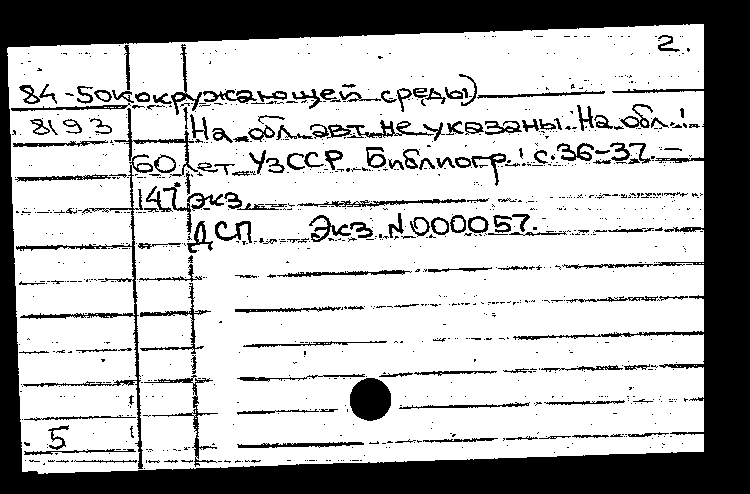 2.
84-50к окружающей среды)
8193 На обл. авт. не указаны. На обл.:
60 лет УзССР. Библиогр.: с.36-37. –
147 экз.
ДСП. Экз. N000057.
5